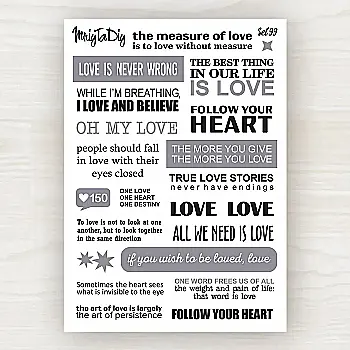 MrigTaDig
the measure of love
is to love without measure
Set 99
LOVE IS NEVER WRONG
THE BEST THING
IN OUR LIFE
IS LOVE
WHILE I'M BREATHING,
I LOVE AND BELIEVE
OH MY LOVE
FOLLOW YOUR
HEART
people should fall
in love with their
eyes closed
THE MORE YOU GIVE
THE MORE YOU LOVE
TRUE LOVE STORIES
never have endings
150
ONE LOVE
ONE HEART
ONE DESTINY
LOVE LOVE
To love is not to look at one
another, but to look together
in the same direction
ALL WE NEED IS LOVE
if you wish to be loved, love
Sometimes the heart sees
what is invisible to the eye
ONE WORD FREES US OF ALL
the weight and pain of life:
that word is love
the art of love is largely
the art of persistence
FOLLOW YOUR HEART